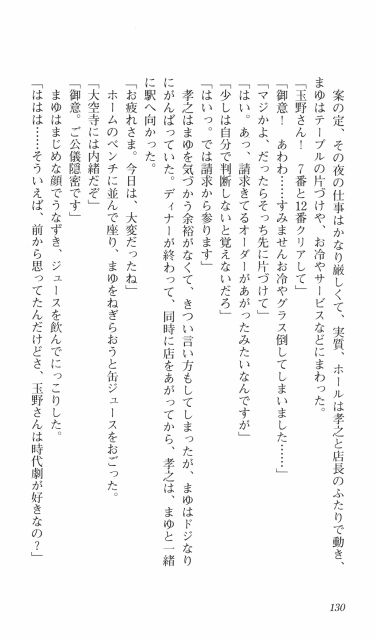 案の定、その夜の仕事はかなり厳しくて、実質、ホールは孝之と店長のふたりで動き、
まゆはテーブルの片づけや、お冷やサービスなどにまわった。
「玉野さん！　7番と12番クリアして」
「御意！　あわわ……すみませんお冷やグラス倒してしまいました……」
「マジかよ、だったらそっち先に片づけて」
「はい。あっ、請求きてるオーダーがあがったみたいなんですが」
「少しは自分で判断しないと覚えないだろ」
「はいっ。では請求から参ります」
孝之はまゆを気づかう余裕がなくて、きつい言い方もしてしまったが、まゆはドジなり
にがんばっていた。ディナーが終わって、同時に店をあがってから、孝之は、まゆと一緒
に駅へ向かった。
「お疲れさま。今日は、大変だったね」
ホームのベンチに並んで座り、まゆをねぎらおうと缶ジュースをおごった。
「大空寺には内緒だぞ」
「御意。ご公儀隠密です」
まゆはまじめな顔でうなずき、ジュースを飲んでにっこりした。
「ははは……そういえば、前から思ってたんだけどさ、玉野さんは時代劇が好きなの？」
130